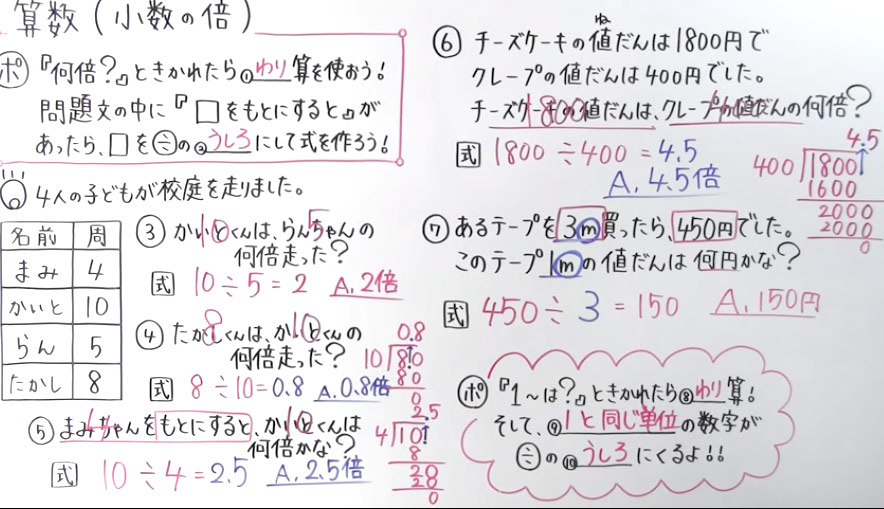 算数(小数の倍)
ポ 『何倍?』ときかれたら①わり算を使おう!
問題文の中に『□をもとにすると』が
あったら、□を÷の②うしろにして式を作ろう!
4人の子どもが校庭を走りました。
名前 周
まみ 4
かいと 10
らん 5
たかし 8
③ かいとくんは、らんちゃんの
10 5
何倍走った?
式 10÷5=2 A.2倍
④ たかしくんは、かいとくんの
8 10
何倍走った?
式 8÷10=0.8 A.0.8倍
0.8
10 8.0
80
0
⑤ まみちゃんをもとにすると、かいとくんは
4 10
何倍かな?
式 10÷4=2.5 A.2.5倍
2.5
4 10
8
20
20
0
⑥ チーズケーキの値だんは1800円で
ね
クレープの値だんは400円でした。
チーズケーキの値だんは、クレープの値だんの何倍?
1800
式 1800÷400=4.5
A.4.5倍
4.5
400 1800
1600
2000
2000
0
⑦ あるテープを3m買ったら、450円でした。
このテープ1mの値だんは何円かな?
式 450÷3=150 A.150円
ポ 『1~は?』ときかれたら⑧わり算!
そして、⑨1と同じ単位の数字が
÷の⑩うしろにくるよ!!